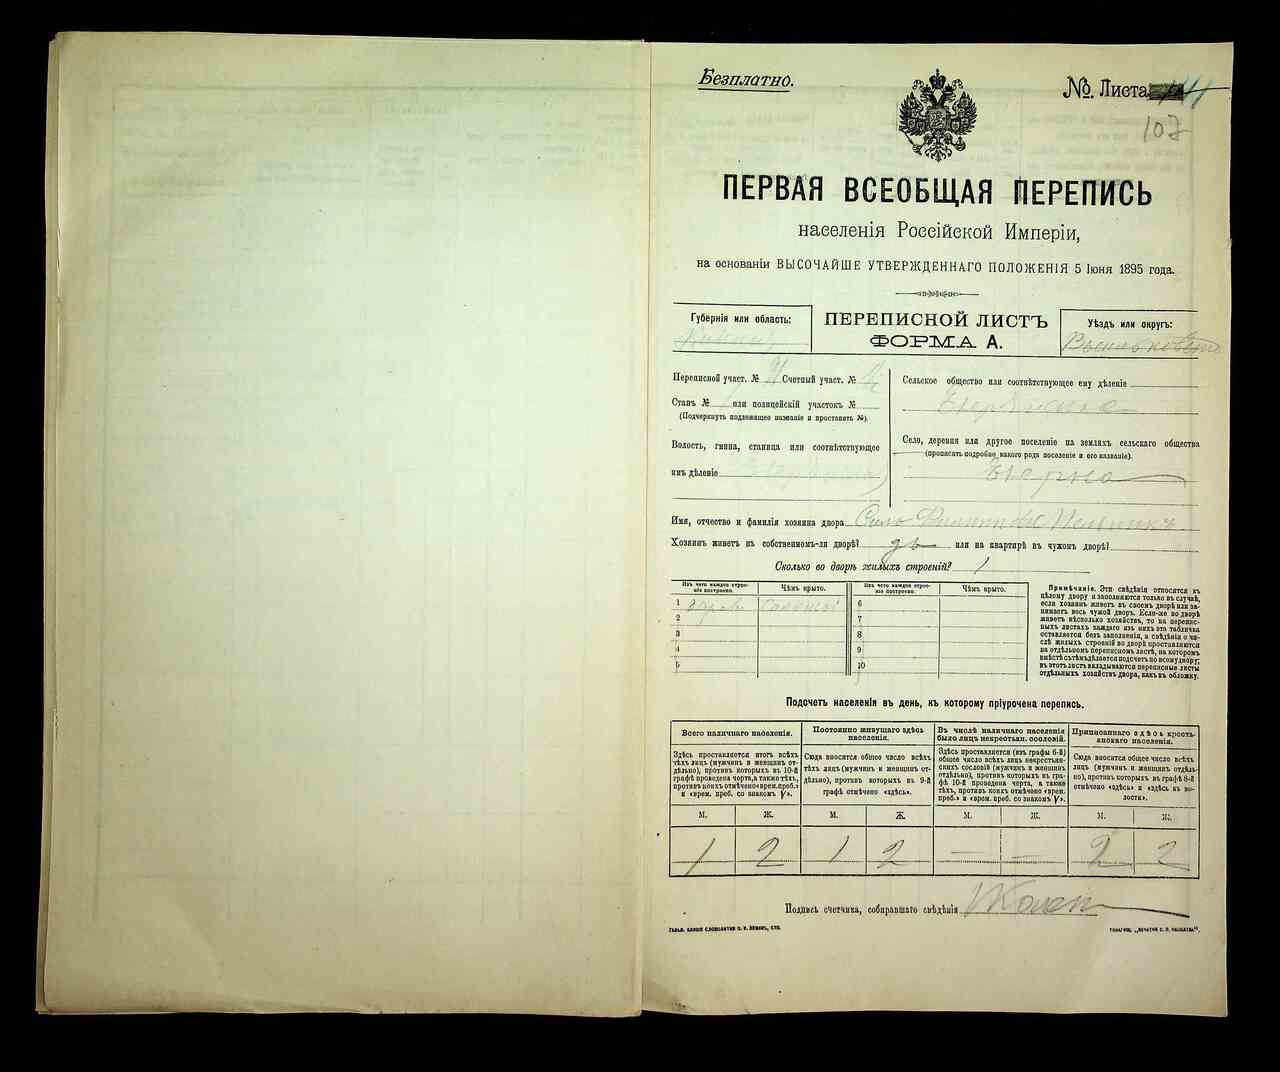 Безплатно.
№. Листа
107
ПЕРВАЯ ВСЕОБЩАЯ ПЕРЕПИСЬ
населенія Россійской Имперіи,
на основаніи ВЫСОЧАЙШЕ УТВЕРЖДЕННАГО ПОЛОЖЕНІЯ 5 Іюня 1895 года.
Губернія или область:
ПЕРЕПИСНОЙ ЛИСТЪ
ФОРМА А.
Уѣздъ или округъ:
Переписной участ. № Счетный участ. № 2
Станъ № или полицейскій участокъ №
(Подчеркнуть подлежащее названіе и проставить №).
Волость, гмина, станица или соотвѣтствующее
имъ дѣленіе
Сельское общество или соотвѣтствующее ему дѣленіе
Село, деревня или другое поселеніе на земляхъ сельскаго общества
(прописать подробно, какого рода поселеніе и его названіе).
Имя, отчество и фамилія хозяина двора
Хозяинъ живетъ въ собственномъ-ли дворѣ? да или на квартирѣ въ чужомъ дворѣ?
Сколько во дворѣ жилыхъ строеній? 1
Изъ чего каждое строеніе построено. Чѣмъ крыто. Изъ чего каждое строеніе построено. Чѣмъ крыто.
1 Соломой 6
2 7
3 8
4 9
5 10
Примѣчаніе. Эти свѣдѣнія относятся къ
цѣлому двору и заполняются только въ случаѣ,
если хозяинъ живетъ въ своемъ дворѣ или занимаетъ
весь чужой дворъ. Если-же во дворѣ
живетъ нѣсколько хозяйствъ, то на переписныхъ
листахъ каждаго изъ нихъ эта табличка
оставляется безъ заполненія, а свѣдѣнія о числѣ
жилыхъ строеній во дворѣ проставляются
на отдѣльномъ переписномъ листѣ, на которомъ
вмѣстѣ съ тѣмъ дѣлается подсчетъ по всему двору;
въ этотъ листъ вкладываются переписные листы
отдѣльныхъ хозяйствъ двора, какъ въ обложку.
Подсчетъ населенія въ день, къ которому пріурочена перепись.
Всего наличнаго населенія.
Здѣсь проставляется итогъ всѣхъ
тѣхъ лицъ (мужчинъ и женщинъ отдѣльно),
противъ которыхъ въ 10-й
графѣ проведена черта, а также тѣхъ,
противъ коихъ отмѣчено «врем. преб.»
и «врем. преб. со знакомъ V».
Постоянно живущаго здѣсь
населенія.
Сюда вносится общее число всѣхъ
тѣхъ лицъ (мужчинъ и женщинъ отдѣльно),
противъ которыхъ въ 9-й
графѣ отмѣчено «здѣсь».
Въ числѣ наличнаго населенія
было лицъ некрестьян. сословій.
Здѣсь проставляется (изъ графы 6-й)
общее число всѣхъ лицъ некрестьянскихъ
сословій (мужчинъ и женщинъ
отдѣльно), противъ которыхъ въ графѣ
10-й проведена черта, а также
тѣхъ, противъ коихъ отмѣчено «врем.
преб.» и «врем. преб. со знакомъ V».
Приписаннаго здѣсь крестьянскаго
населенія.
Сюда вносится общее число всѣхъ
лицъ (мужчинъ и женщинъ отдѣльно),
противъ которыхъ въ графѣ 8-й
отмѣчено «здѣсь» и «здѣсь въ волости».
М. Ж. М. Ж. М. Ж. М. Ж.
1 2 1 2 — — 2 2
Подпись счетчика, собиравшаго свѣдѣнія